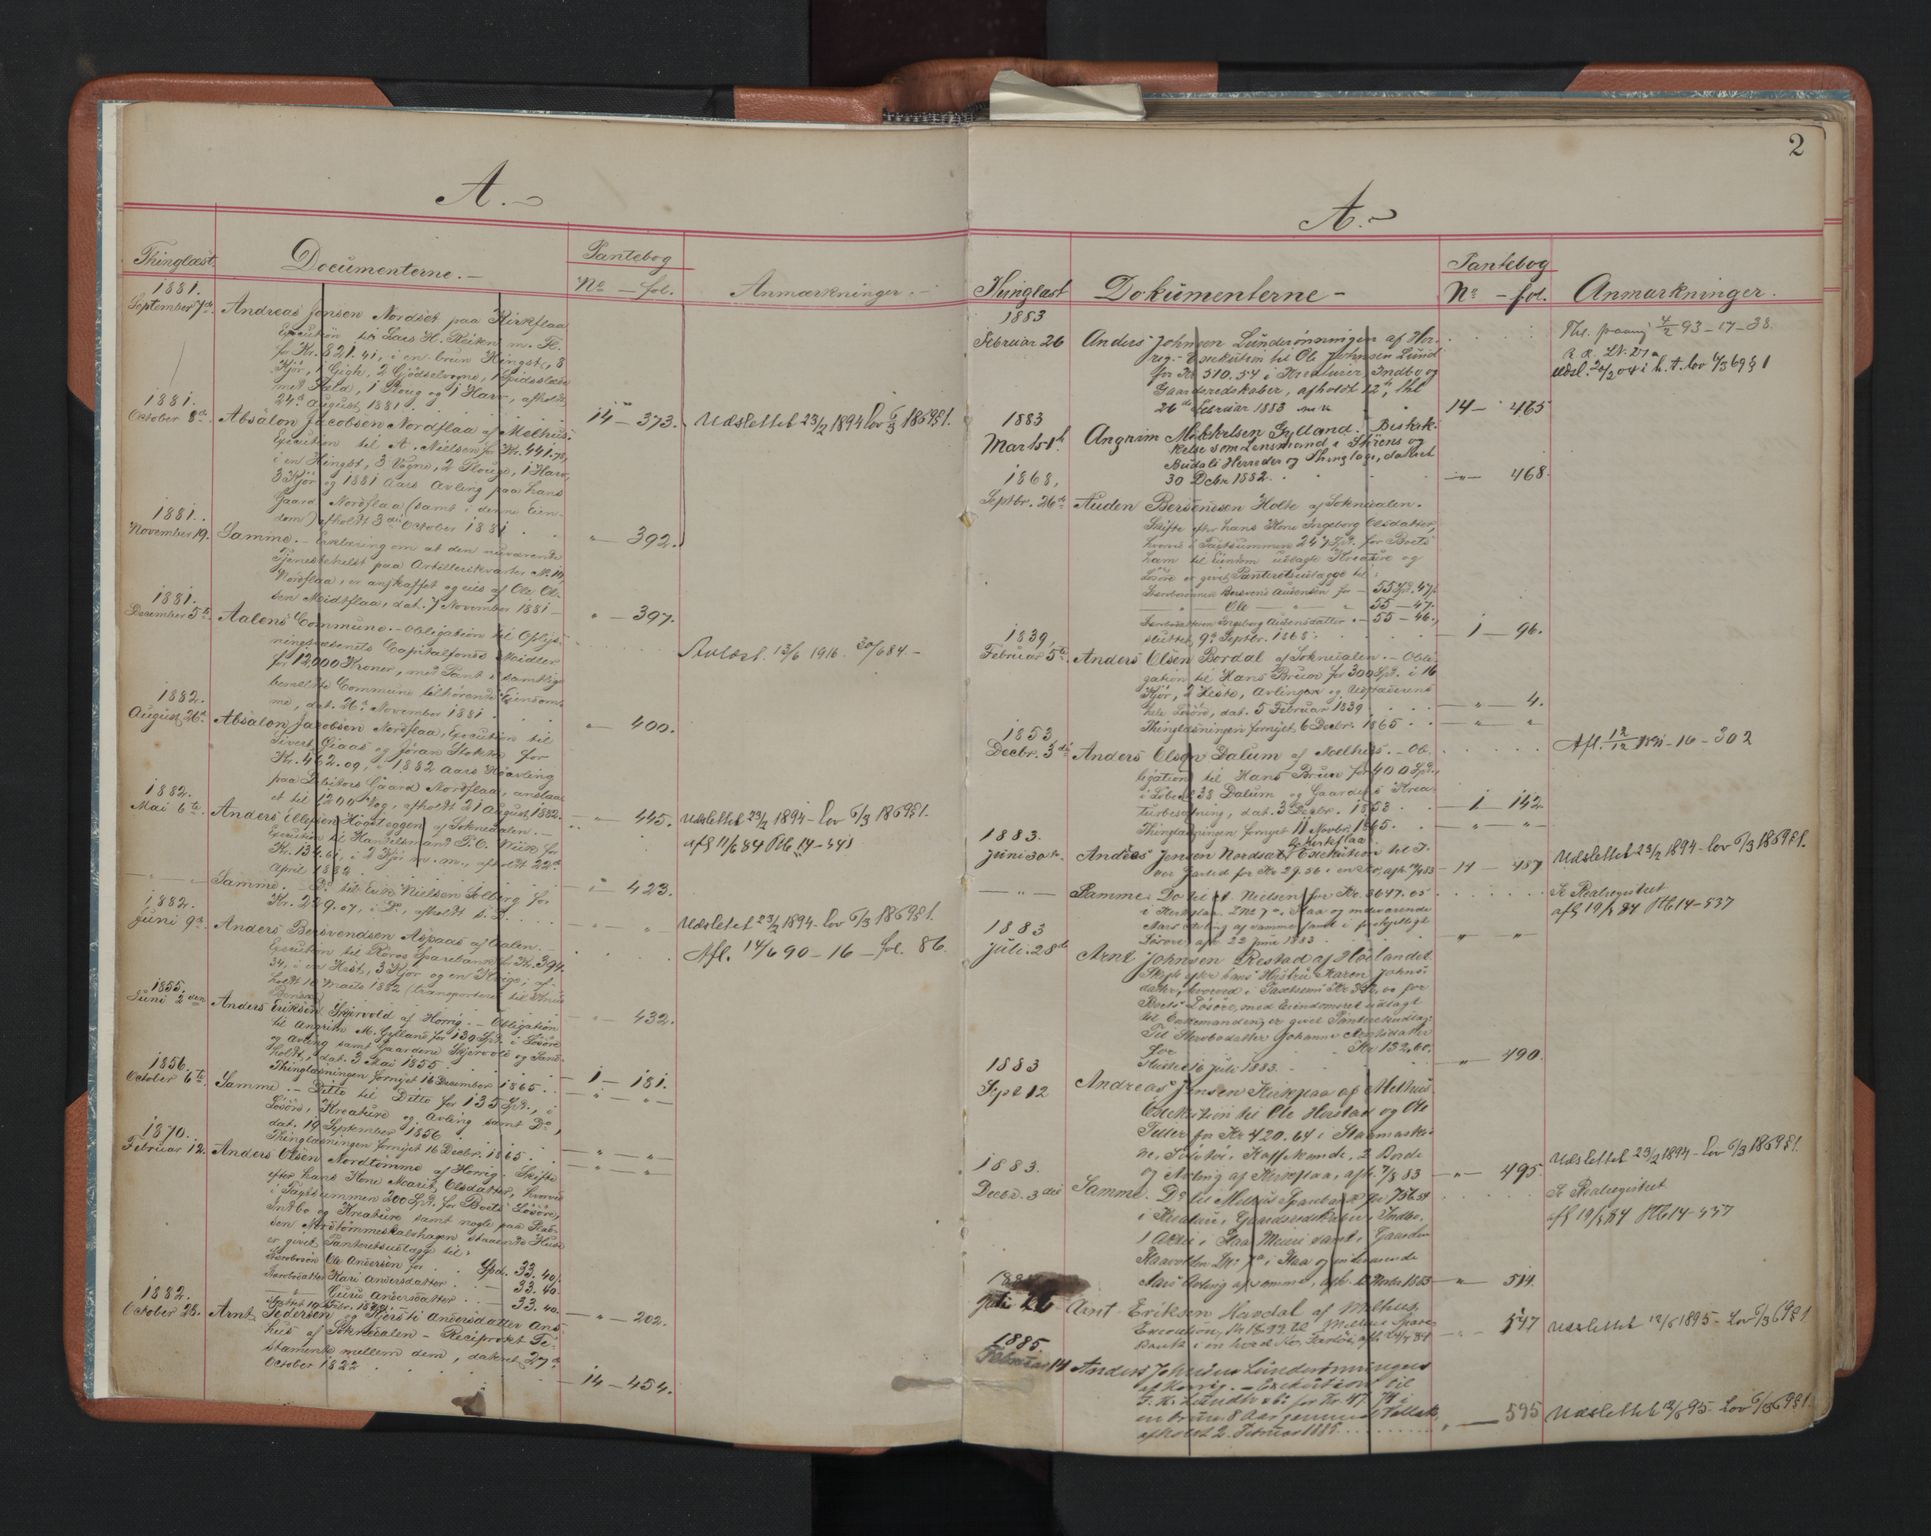 A.-
Thinglæst.
Documenterne.-
Pantebog
No - fol.
Anmærkninger.-
1881.
September 7de
Andreas Jensen Nordset paa Kirkflaa
Execution til Lars H. m. Fl.
for Kr. 821.41, i en brun Hingst, 8
Kjør, 1 Gigh, 2 Gjødselvogne, 1 Spidsslæde
med Fæld, 1 Ploug og 1 Harv, afholdt
24de August 1881.
14 - 373.
Udslettet 23/2 1894 Lov 6/3 1869 § 1.
1881.
October 8de
Absalon Jacobsen Nordflaa af Melhus.
Execution til A. Nielsen for Kr. 441.78,
i en Hingst, 3 Vogne, 2 Plouge, 1 Harv,
3 Kjør og 1881 Aars Avling paa hans
Gaard Nordflaa (samt i denne Eien-
dom) afholdt 3die October 1881
" - 392.
1881.
November 19.
Samme. - Erklæring om at den nuværende
Tjenestehest paa Artillerikvarter No 10
Nordflaa, er anskaffet og eies af Ole Ol-
sen Midtflaa, dat. 7 November 1881 -
" - 397.
1881.
December 5te
Aalens Commune. - Obligation til Oplys-
ningsvæsenets Capitalfonds Midler
for 12,000 Kroner, med Pant i samtlige
bemeldte Commune tilhørende Eiendom-
me, dat. 26de November 1881.
" - 400.
Avlæst. 13/6 1916. 30/684.-
1882.
August 26de
Absalon Jacobsen Nordflaa, Execution til
Sivert Giaas og Jöran Slokse for
Kr. 462.09, i 1882 Aars Høavling
paa Debitors Gaard Nordflaa, anslaa-
et til 1200 Vog, afholdt 21 August 1882.
" - 445.
Udslettet 23/2 1894 - Lov 6/3 1869 § 1.
1882.
Mai 6te
Anders Ellefsen Høgseteggen af Soknedalen. -
Execution til Handelsmand T. O. for
Kr. 134.61, i 2 Kjør m. m., afholdt 22de
April 1882
" - 423.
afl 11/6 84 Pb 14-541
- " -
Samme. - Do til Erik Nielsen Solberg for
Kr. 289.07, i Do, afholdt s. D.
" "
Udslettet 23/2 1894 - Lov 6/3 1869 § 1.
1882.
Juni 9de
Anders Bersvendsen Aspaas af Aalen. -
Execution til Røros Sparebank for Kr. 394.
34, i en Hest, 3 Kjør og en Qvige, af-
holdt 10 Marts 1882 (transporteret til Knud
" - 432.
Afl. 14/6 90 - 16 - fol. 86.
1855.
Juni 2den
Anders Eriksen Skjervold af Horrig. - Obligation
til Angrim M. Gylland for 130 Spd. i Løsøre
og Avling samt Gaardene Skjervold og Sand-
holdt, dat. 3 Mai 1855
Thinglæsningen fornyet 16 December 1865.
1 - 181.
" "
1856.
October 6te
Samme. - Ditto til Ditto for 135 Spd., i
Løsøre, Kreature og Avling samt Do,
dat. 19 September 1856
Thinglæsningen fornyet 16 Decbr. 1865
" - "
" - "
1870.
Februar 12.
Anders Olsen Nordtømme af Horrig - Skifte
efter hans Kone Marit Olsdatter, hvorved
i Taxtsummen 200 Spd. for Boets Løsøre,
Indbo og Kreature samt nogle paa Plad-
sen Nordtømmeskalshagen staaende Huse
er givet Panteretsudlæg til:
Ole Andersen for Spd. 33.40/.
Kari Andersdatter - 33.40.
- " - Guru Andersdatter - 33.40.
Sluttet 10 Febr. 1870
" - 202.
1882.
October 28.
Arnt Pedersen og Kjersti Andersdatter Ans-
hus af Soknedalen - Reciprokt Te-
stamente mellem dem, dateret 27de
October 1822
14 - 454.
2
A.-
Thinglæst
Dokumenterne -
Pantebog
No - fol.
Anmarkninger.
1883
Februar 26
Anders Johnsen Lunderønningen af Hor-
rig. - Exekution til Ole Johnsen Lund
for Kr 510.54 i Kreaturer, Indbo og
Gaardredskaber, afholdt 12te, thl
26de Februar 1883
14 - 465
Thr. paany 4/2 93-17-38.
Udsl. 20/2 04 i h. t. lov 6/3 69 § 1
1883
Marts 1ste
Angrim Mikkelsen Gylland. Beskik-
kelse som Lensmand i Störens og
Budals Herreder og Thinglag, dateret
30 Decbr 1882.
" - 468.
1868,
Septbr. 26de
Auden Bersendsen Holte af Soknedalen.
Skifte efter hans Kone Ingeborg Olsdatter,
hvorved i Taxtsummen 247 Spd. for Boets
ham til Eiendom udlagte Kreature og
Løsøre er givet Panteretsudlægge til:
Bersvend Audensen for - 55 Spd. 47/.
- " - Ole - " - " 55 - 47.
Ingeborg Audensdatter " - 55 - 46.
sluttet 9de Septbr. 1868.
1 - 96.
1839,
Februar 5te
Anders Olsen Bordal af Soknedalen. - Obli-
gation til Hans Bruun for 300 Spd. i 16
Kjør, 2 Heste, Avlingen og Udpasserens
hele Løsøre, dat. 5 Februar 1839
Thinglæsningen fornyet 6 Decbr. 1865
- " - 4.
- " - "
1853,
Decbr. 3die
Anders Olsen Dalum af Melhus. - Ob-
ligation til Hans Bruun for 400 Spd.,
i Løbe No 38 Dalum og Gaardens Krea-
turbesætning, dat. 3 Decbr. 1853
Thinglæsningen fornyet 11 Novbr. 1865.
1 - 142.
- " - "
Afl. 12/12 1891 - 16 - 302
1883.
Juni 30te
Andreas Jensen Nordsæt, Kirkflaa Exekution til I-
ver Jarted for Kr. 29.56 i en Ko, afh. 14/6 83
14 - 487
Udslettet 23/2 1894 - Lov 6/3 1869 § 1.
- " -
Samme. Do til A. Nielsen for Kr. 3647.05
i Kirkflaa L No 7a i Flaa og indeværende
Aars Avling af samme samt i forskjelligt
Løsøre, afh. 22 Juni 1883.
" - "
Se Realregistret
afl 19/1 84 Pb 14-537
1883
Juli 28de
Arnt Johnsen Restad af Hølandet.
Skifte efter hans Hustru Karen Johns-
datter, hvorved i Taxtsum Kr 392,00 for
Boets Løsøre, med Eiendomsret udlagt
til Enkemanden, er givet Panteretsudlæg:
Til Stervbodatter Johanna Arntsdatter
for Kr 132,60.
Sluttet 16 Juli 1883.
" - 490.
1883
Sept 12
Andreas Jensen Kirkflaa af Melhus
Exekution til Ole Horstad og Ole
Teller for Kr 420.64 i Staamaski-
ne, Kaffekande, 2 Borde
og Avling af Kirkflaa, afh. 7/8 83
" - 495
Udslettet 23/2 1894 - Lov 6/3 1869 § 1.
1883.
Decbr. 3die
Samme Do til Melhus Sparebank for 756.54
i Kreatur, Gaardsredskaber, Indbo,
1 Aktie i Flaa Meieri samt i Gaarden
Kirkflaa L No 7a i Flaa og indeværende
Aars Avling af samme, afh. 1883
" - 514.
Se Realregistret
afl 19/1 84 Pb 14-537
1884
Juli 26
Arnt Eriksen Havdal af Melhus,
Execution, Kr 18.99 til Melhus Spare-
bank i en hvid Ko, Løsøre, afh. 24/7 84
" - 547
Udslettet 12/6 1895 - Lov 6/3 69 § 1
1885.
Februar 14
Anders Johnsen Lunderønningen
af Horrig. - Exekution til
J. K. Lundhs for Kr. 47.74 i
en brun 8 Aar gammel Vallak,
afholdt 2. Februar 1885.
" - 595
Udslettet 12/6 95 - Lov 6/3 69 § 1.